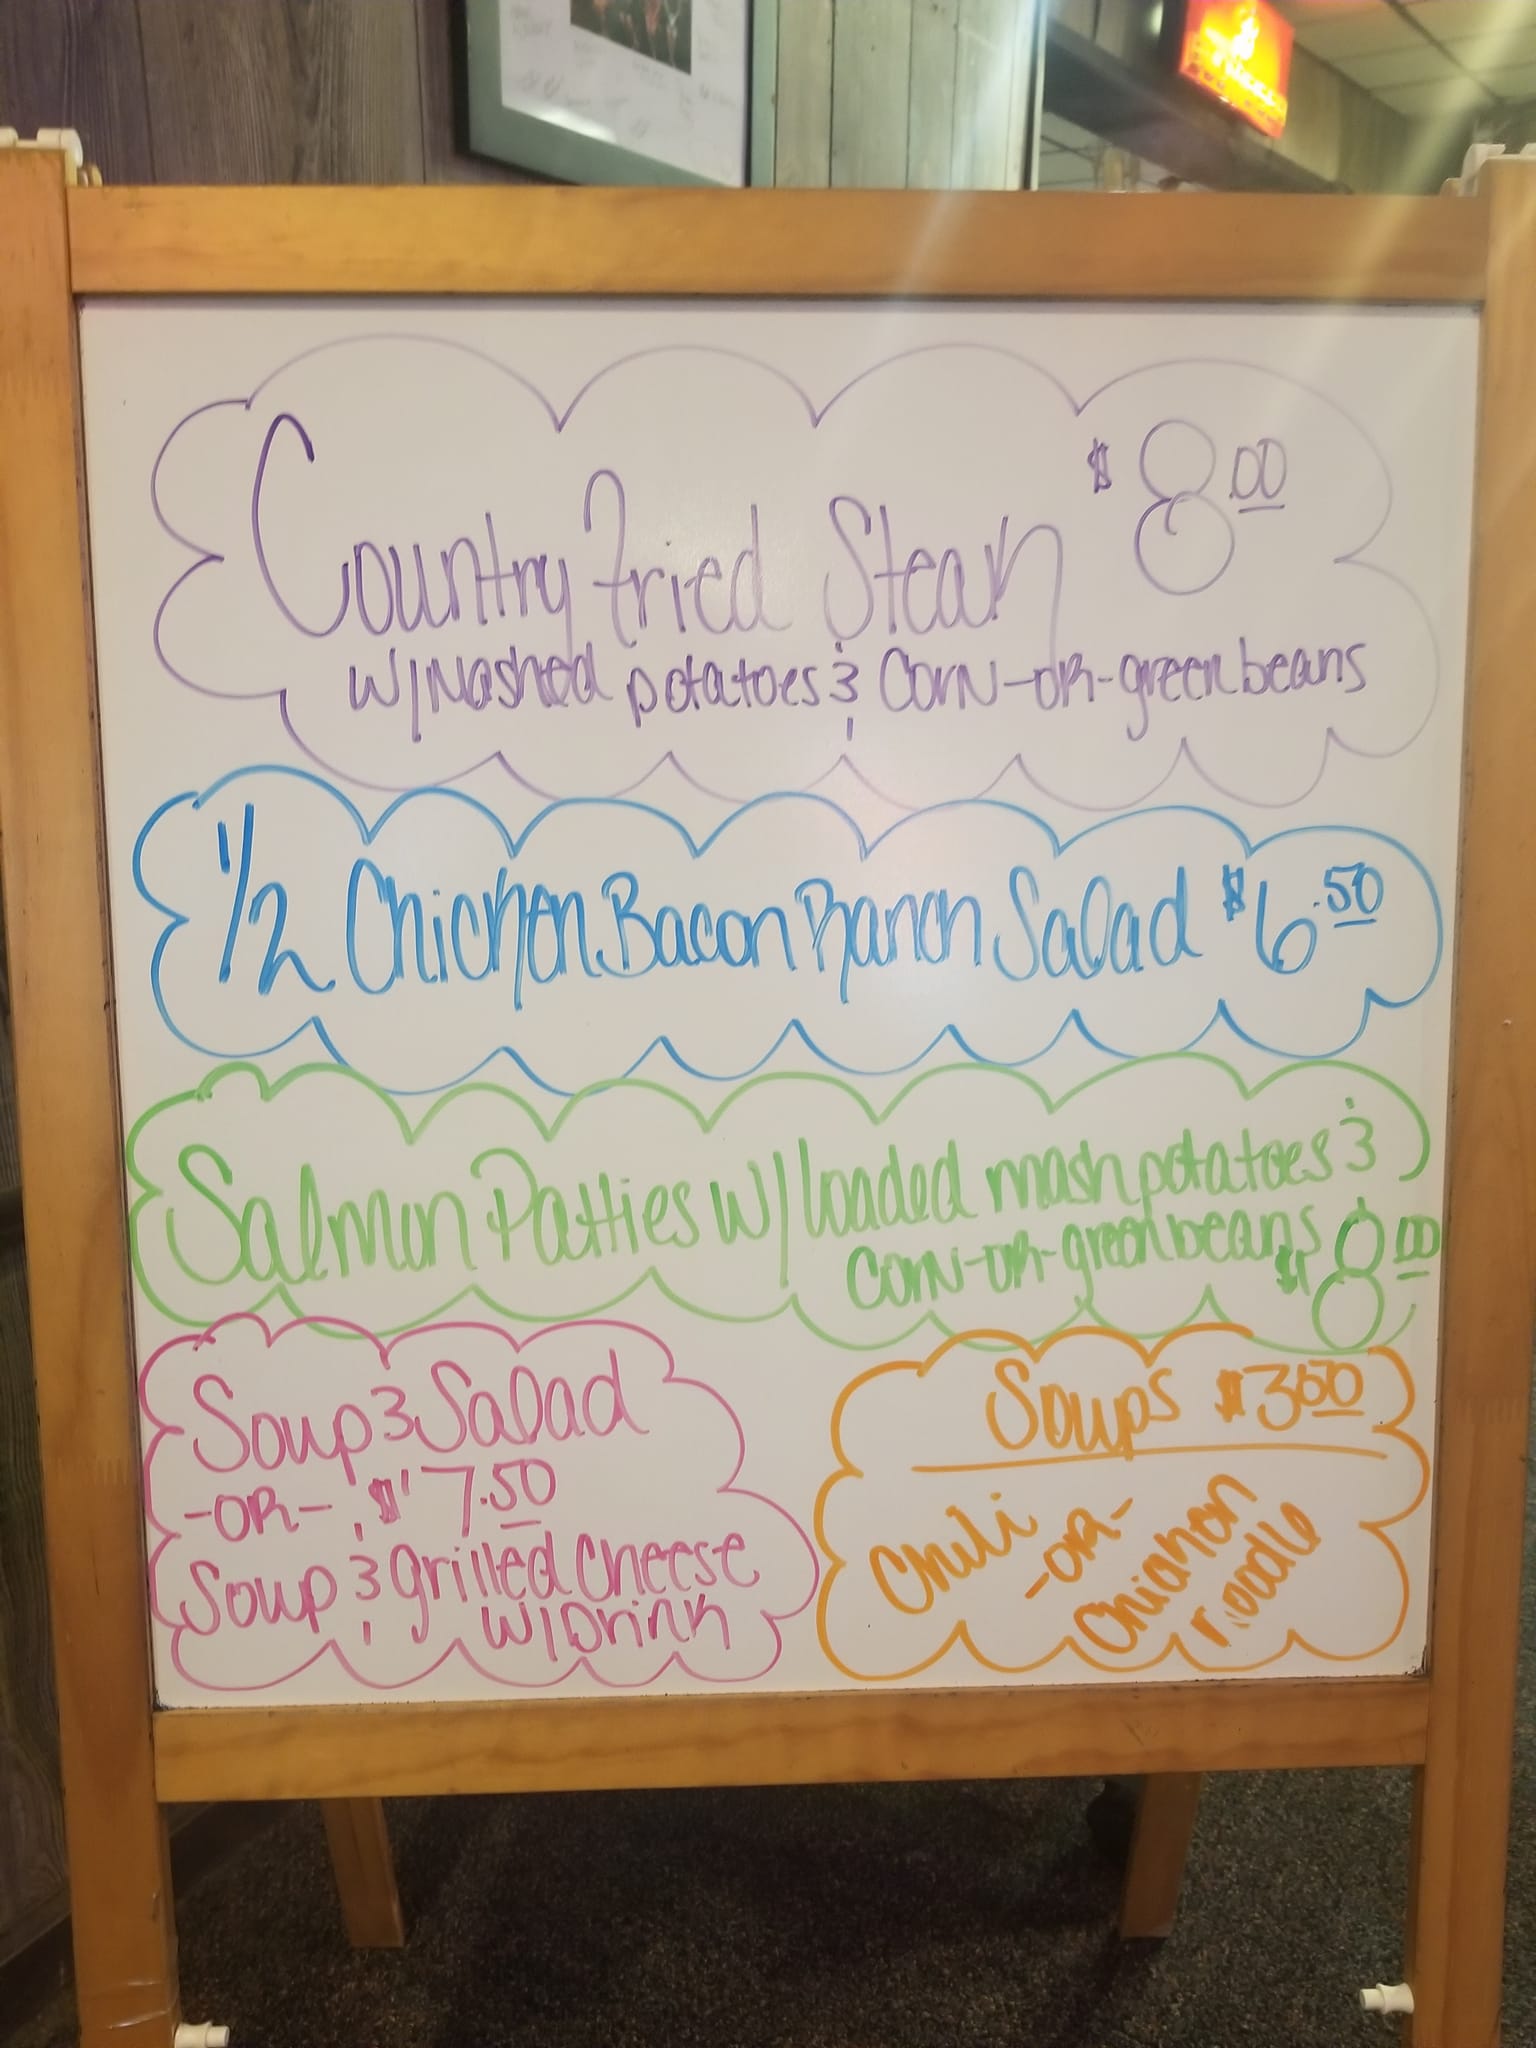 Country Fried Steak $8.00
w/Mashed potatoes & Corn-or-green beans
1/2 Chicken Bacon Ranch Salad $6.50
Salmon Patties w/loaded mash potatoes &
Corn-or-green beans $8.00
Soup & Salad
-OR- $7.50
Soup & grilled cheese
w/Drink
Soups $3.00
Chili
-OR-
Chicken
noodle